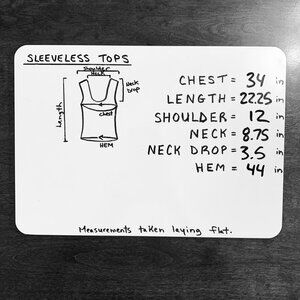 SLEEVELESS TOPS
Shoulder
Neck
Neck
Drop
Length
chest
HEM
CHEST = 34 in
LENGTH = 22.25 in
SHOULDER = 12 in
NECK = 8.75 in
NECK DROP = 3.5 in
HEM = 44 in
Measurements taken laying flat.